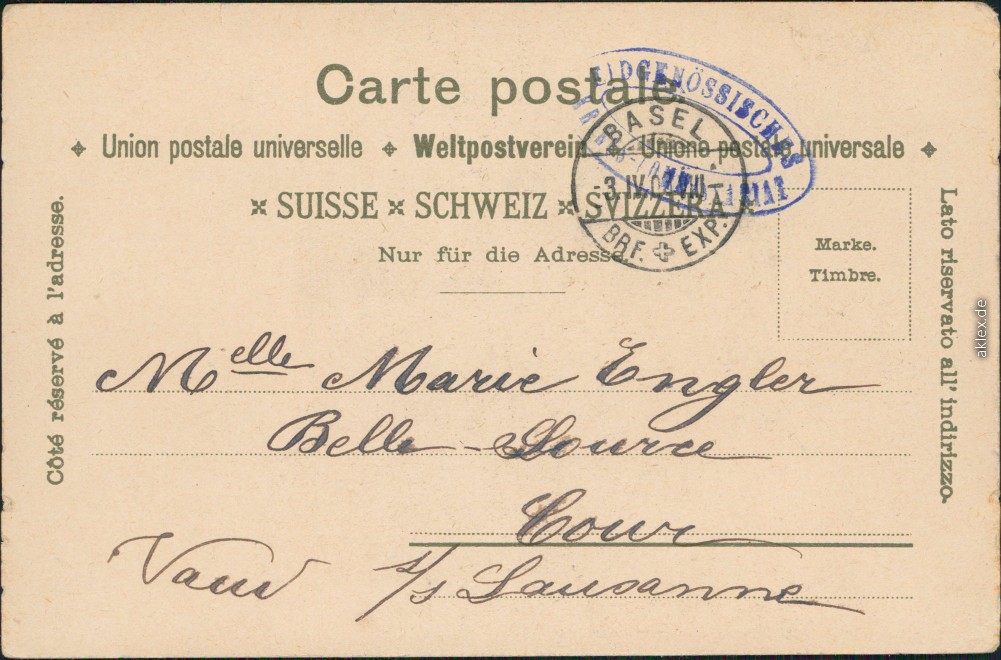 Carte postale.
Union postale universelle Weltpostverein Unione postale universale
SUISSE SCHWEIZ SVIZZERA
Nur für die Adresse.
EIDGENÖSSISCHES
BASEL
-3.IV.
BRF. EXP.
Marke.
Timbre.
Côté réservé à l'adresse.
Lato riservato all' indirizzo.
Melle Marie Engler
Belle-Source
Cour
Vaud s/s Lausanne
aklex.de